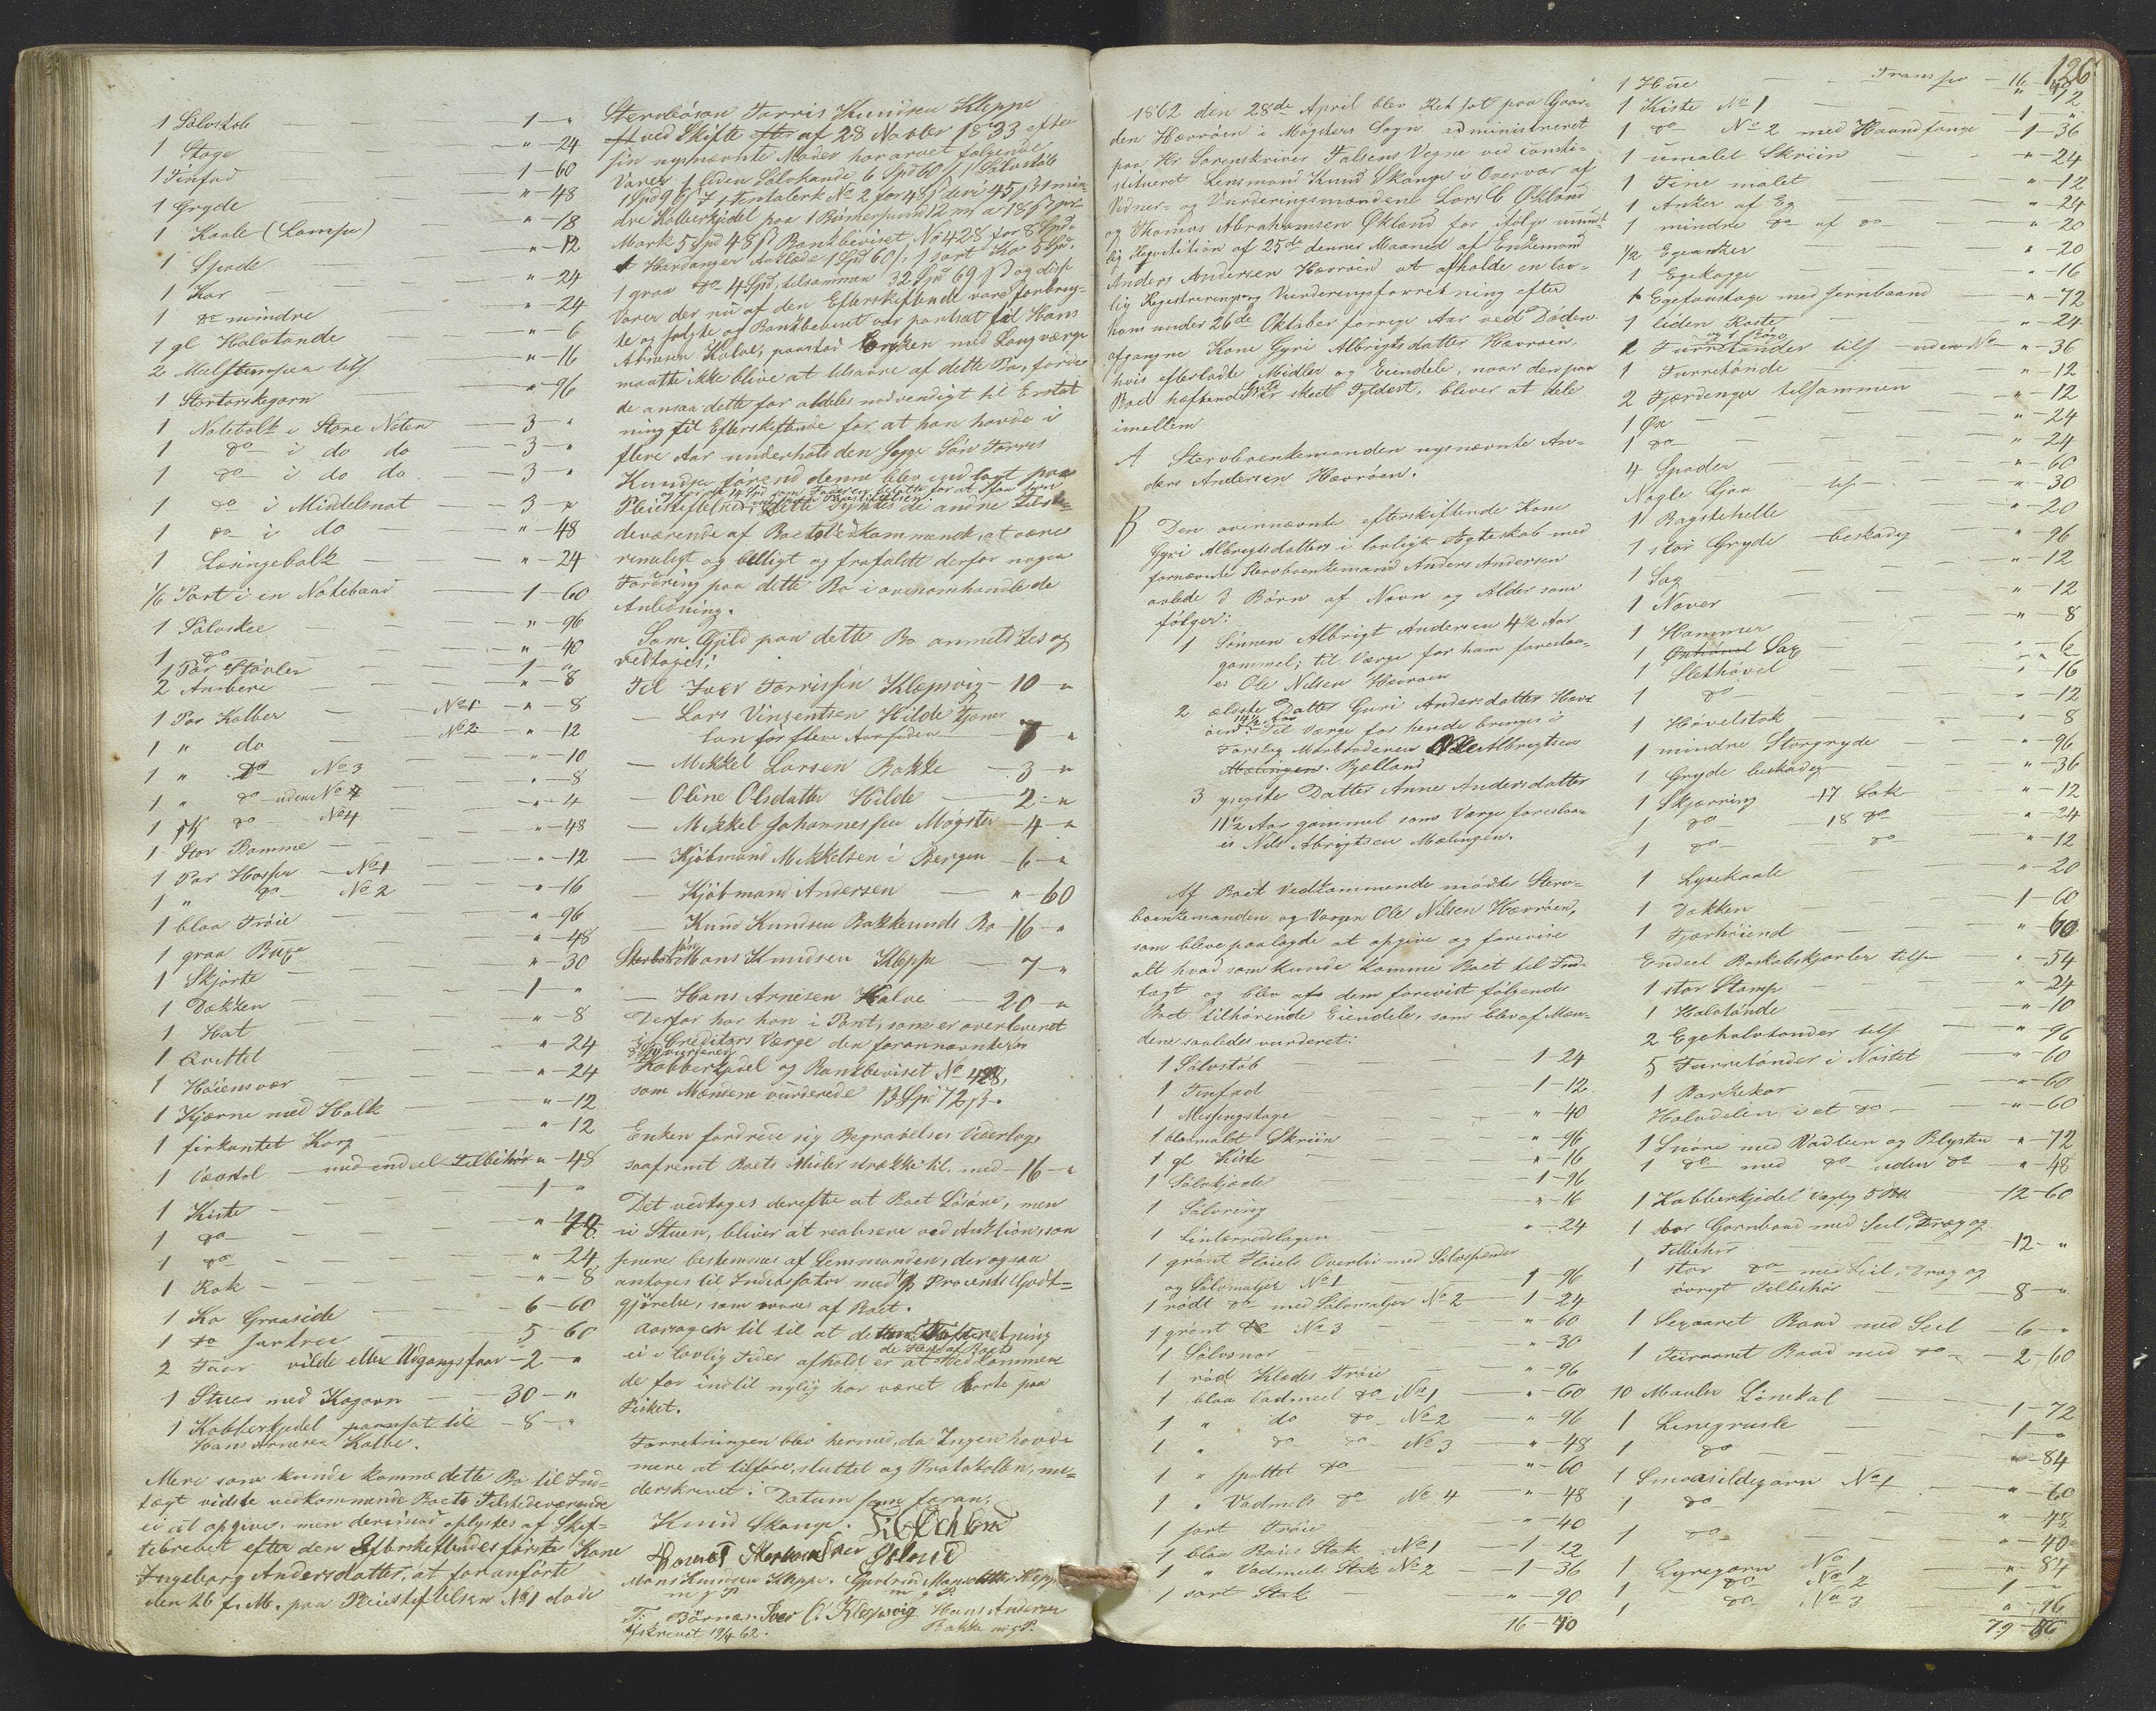 1 Sölvstob — — 1 — "
1 Stage — " — 24
1 Tinfad — 1 — 60
1 Gryde — " — 48
1 Kaale (Lampe) — " — 18
1 Spade — " — 12
1 Kar — " — 24
1 do mindre — " — 24
1 gl. Halvtønde — " — 6
2 tils — " — 16
1 Stortorskegarn — " — 96
1 Notebolk i Store Noten — 3 — "
1 do i do do — 3 — "
1 do i do do — 3 — "
1 do i Middelsnot — 3 — "
1 do i do — " — 48
1 Læsingebolk — " — 24
1/6 Part i en Notebaad — 1 — 60
1 Sölvskee — " — 96
1 do — " — 40
1 Par Støvler — 1 — "
2 Ambere — " — 8
1 Par Kalber — No 1 — " — 8
1 " do — No 2 — " — 12
1 " do No 3 — " — 10
1 " do uden No — " — 8
1 do No 4 — " — 4
1 Stor Bomme — " — 48
1 Par Hoser — No 1 — " — 12
1 " do No 2 — " — 16
1 blaa Trøie — " — 96
1 graa Buxe — " — 48
1 Skjorte — " — 30
1 Dækken — 1 — "
1 Hat — " — 8
1 Qvittel — " — 24
1 Høiensvær — " — 24
1 Kjærne med Holk — " — 12
1 firkantet Korg — " — 12
1 Vævstol med endeel Tilbehør " — 48
1 Kiste — 1 — "
1 do — " — 48
1 do — " — 24
1 Rok — " — 8
1 Ko Graaside — 6 — 60
1 do — 5 — 60
2 Faar vilde eller Udgangsfaar — 2 — "
1 Stue med Kogovn — 30 — "
1 Kobberkjedel pantsat til — 8 — "
Hans Arnesen Kalve.
Mere som kunde komme dette Bo til Ind-
tægt vidste vedkommende Boets Tilstedeværende
ei at opgive, men derimod oplystes af Skif-
tebrevet efter den Efterskiftendes første Kone
Ingeborg Andersdatter, at foranførte
den 26 f. M. paa Pleiestiftelsen No 1 døde
Stervbøsøn Torris Knudsen Kleppe
ved Skifte af 28 Novbr 1833 efter
sin nysnævnte Moder har arvet følgende
Varer 1 liden Sölvkande 6 Spd 60 ß, 1 Sölvstob
dre Kobberkjedel paa 1 Bismerpund 12 mrk a 18 ß pr
Mark 5 Spd 48 ß. Bankbeviset No 428 for 8 Spd.
1 Hardanger Aaklæde 1 Spd 60 ß, 1 sort Ko 5 Spd.
1 graa do 4 Spd, tilsammen 32 Spd 69 ß og disse
Varer der nu af den Efterskiftende vare forbrug-
te og solgte og Bankbeviset var pantsat til Hans
Arnesen Kalve, paastod Enken med Laugværge
maatte ikke blive at udsvare af dette Bo, fordi
de ansaa dette for aldeles nødvendigt til Erstat
ning til Efterskiftende for at han havde i
flere Aar underholdt den Søn Torris
Knudsen førend denne blev indlagt paa
Pleiestiftelsen; dette syntes de andre Tilste-
deværende af Boets Vedkommende, at være
rimeligt og billigt og frafaldt derfor nogen
Fordring paa dette Bo i ovenomhandlede
Anledning.
Som Gjeld paa dette Bo anmeldtes og
vedtoges:
Til Iver Torrissen Klepsvig — 10 — "
— Lars Vinsentsen Hilde tjener
løn for flere Aar siden — 7 — "
— Mikkel Larsen Bakke — 3 — "
— Oline Olsdatter Hilde — 2 — "
— Mikkel Johannessen Møgster — 4 — "
— Kjøbmand Mikkelsen i Bergen — 6 — "
— Kjøbmand Andersen — " — 60
— Knud Knudsen Bakkesunds Bo 16 — "
Mons Knudsen Kleppe — 7 — "
— Hans Arnesen Kalve — 20 — "
Derfor har han i Pant, som er overleveret
Creditors Værge den forannævnte
Kobberkjedel og Bankbeviset No 428,
som Mændene vurderede 13 Spd 72 ß.
Enken fordrede sig Begravelses Vederlag
saafremt Boets Midler strække til, med 16 — "
Det vedtoges derefter at Boet Løsøre, men
ei Stuen, bliver at realisere ved Auktion, som
senere bestemmes af Lensmanden, der ogsaa
antages til Inkassator med Procents Godt-
gjørelse, som svares af Boet.
Aarsagen til at denne Forretning
ei i lovlig Tider afholdt er at de fleste af Boets Vedkommen
de for indtil nylig har været borte paa
Fisket.
Forretningen blev hermed, da Ingen havde
mere at tilføre, sluttet og Protokollen un-
derskrevet. Datum som foran.
Knud Skange. L C Økland
Thomas Abrahamsen Økland
Mons Knudsen Kleppe. Gjertrud Monsdatter Kleppe
m. p. P. m. p. P.
Iver O. Klepsvig Hans Andersen
Afskrevet 19/4 62. Bakke m. p. P.
126
1862 den 28de April blev Ret sat paa Gaar-
den Hævrøen i Møgsters Sogn administreret
paa Hr Sorenskriver Falsens Vegne ved consti-
stitueret Lensmand Knud Skange i Overvær af
Vidner- og Vurderingsmændene Lars C Økland
og Thomas Abrahamsen Økland for ifølge mundt-
lig Reqvisition af 25de denne Maaned af Enkemand
Anders Andersen Hævrøen at afholde en lov-
lig Registrerings og Vurderingsforretning efter
ham under 26de Oktober forrige Aar ved Døden
afgangne Kone Gyri Albrigtsdatter Hævrøen,
hvis efterladte Midler og Eiendele, naar den paa
Boet hæftende Gjeld er skeet Fyldest, bliver at dele
imellem
A Stervboenkemanden nysnævnte An-
ders Andersen Hævrøen.
B Den ovennævnte efterskiftende Kone
Gyri Albrigtsdatters i lovligt Ægteskab med
fornævnte Stervboenkemand Anders Andersen
avlede 3 Børn af Navn og Alder som
følger:
1 Sønnen Albrigt Andersen 4½ Aar
gammel; til Værge for ham foreslaa-
es Ole Nilsen Hævrøen
2 ældste Datter Guri Andersdatter Hævr
øen 14½ Aar. Til Værge for hende bringes i
Forslag Morbroderen Nils Albrigtsen
Bjelland
3 yngste Datter Anne Andersdatter
11½ Aar gammel som Værge foreslaa-
es Nils Abrigtsen Mælingen.
Af Boet Vedkommende mødte Sterv-
boenkemanden og Værgen Ole Nilsen Hævrøen,
som bleve paalagde at opgive og forevise
alt hvad som kunde komme Boet til Ind-
tægt og blev af dem forevist følgende
Boet tilhørende Eiendele, som blev af Mæn-
dene saaledes vurderet:
1 Sölvstob — 1 — 24
1 Tinfad — 1 — 12
1 Messingstage — " — 40
1 blaamalet Skriin — " — 96
1 gl. Kiste — " — 16
1 Sölvkjæde — 1 — 96
1 Sölvring — " — 16
1 Linlærredslagen — " — 24
1 grønt Fløiels Overliv med Sölvspænder
og Sölvmaljer No 1 — 1 — 96
1 rødt do med Sölvmaljer No 2 — 1 — 24
1 grønt do No 3 — " — 60
1 Sölvsnor — " — 30
1 rød Klædes Trøie — " — 96
1 blaa Vadmel do No 1 — " — 60
1 " do do No 2 — " — 96
1 " do do No 3 — " — 48
1 " spottet do — " — 60
1 " Vadmels do No 4 — " — 48
1 sort Trøie — " — 40
1 blaa Bois Stak No 1 — 1 — 12
1 " Vadmels Stak No 2 — 1 — 36
1 sort Stak — " — 90
16 — 70
Transpr — 16 — 70
1 Hue — " — 12
1 Kiste No 1 — 1 — "
1 do No 2 med Haandfange — 1 — 36
1 umalet Skriin — " — 24
1 Tine malet — " — 12
1 Anker af Eg — " — 24
1 mindre do af do — " — 20
1/2 Egeanker — " — 20
1 Egekagge — " — 16
1 Egefoustage med Jernbaand — " — 72
1 liden Kaste — " — 24
2 Furretønder tils — uden No — " — 36
1 Furretønde — " — 12
2 Fjerdenger tilsammen — " — 12
1 Øx — " — 24
1 do — " — 24
4 Spader — " — 60
Nogle Ljaa — tils — " — 30
1 Bagstehelle — " — 20
1 stor Gryde — beskadig — " — 96
1 Sag — " — 12
1 Naver — " — 12
1 Hammer — " — 8
1 Sag — " — 6
1 Slethøvel — " — 16
1 do — " — 12
1 Høvelstok — " — 8
1 mindre Storgryde — " — 96
1 Gryde beskadig — " — 36
1 Skjærring 17 Lok — " — 12
1 do 18 do — " — 24
1 do do — " — 12
1 Lysekaale — " — 20
1 Dækken — 1 — 60
1 Fjærhøiend — " — 60
Endeel Boskabskjørler tils — " — 54
1 stor Stamp — " — 24
1 Halvtønde — " — 10
2 Egehalvtønder tils. — " — 96
5 Furretønder i Nøstet — " — 60
1 Barkekar — " — 60
Halvdelen i et do — " — 60
1 Snøre med Vadbeen og Blysten " — 72
1 do med do uden do — " — 48
1 Kobberkjedel Vægtig — 12 — 60
1 Garnbaad med Seil, Dræg og
Tilbehør — 12 — "
1 stor do med Seil, Dræg og
øvrigt Tilbehør — 8 — "
1 Sexaaret Baad med Seil — 6 — "
1 Fiiraaret Baad med do — 2 — 60
10 Mauler Linekal — 1 — 72
1 Linegrusle — 1 — "
1 do — " — 84
1 Smaasildegarn No 1 — " — 60
1 do — " — 48
1 do — " — 40
1 Lyregarn No 1 — " — 84
1 do No 2 — 1 — "
1 do No 3 — " — 96
79 — 86